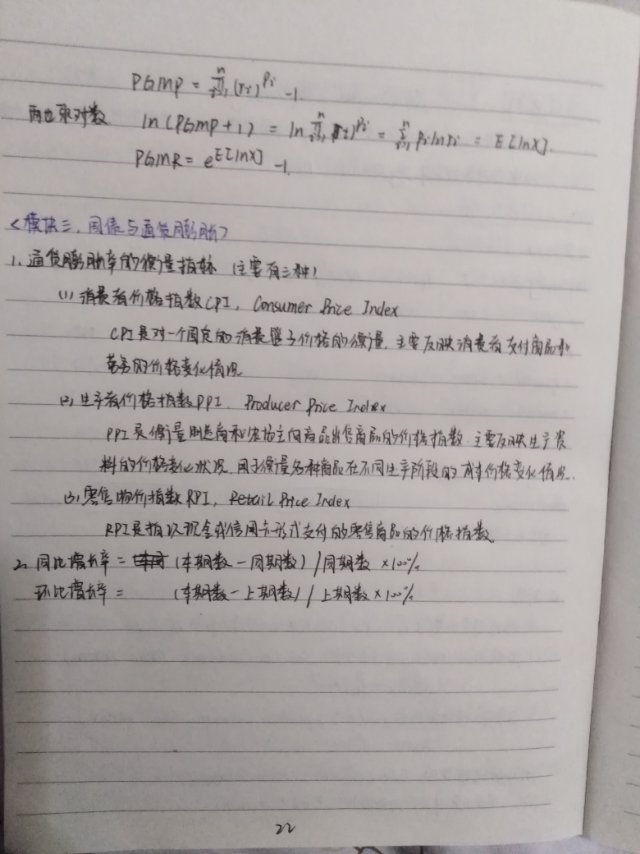 PGMP = ∏ⁿᵢ₌₁ (rᵢ)^Pᵢ −1
两边取对数 ln(PGMP+1) = ln ∏ⁿᵢ₌₁ (rᵢ)^Pᵢ = Σⁿᵢ₌₁ Pᵢ ln rᵢ = E[lnX].
PGMR = e^E[lnX] −1
<模块三. 与通货膨胀>
1. 通货膨胀率的衡量指标 主要有三种!
(1) 消费者价格指数CPI, Consumer Price Index
CPI是对一个固定的消费篮子价格的衡量. 主要反映消费者支付商品和
劳务的价格变化情况
(2) 生产者价格指数PPI. Producer Price Index
PPI是衡量制造商和农场主向商店出售商品的价格指数. 主要反映生产资
料的价格变化状况. 用于衡量各种商品在不同生产阶段的成本价格变化情况.
(3) 零售物价指数RPI, Retail Price Index
RPI是指以现金或信用卡形式支付的零售商品的价格指数.
2. 同比增长率 = (本期数 − 同期数) / 同期数 ×100%
环比增长率 = (本期数 − 上期数) / 上期数 ×100%
22